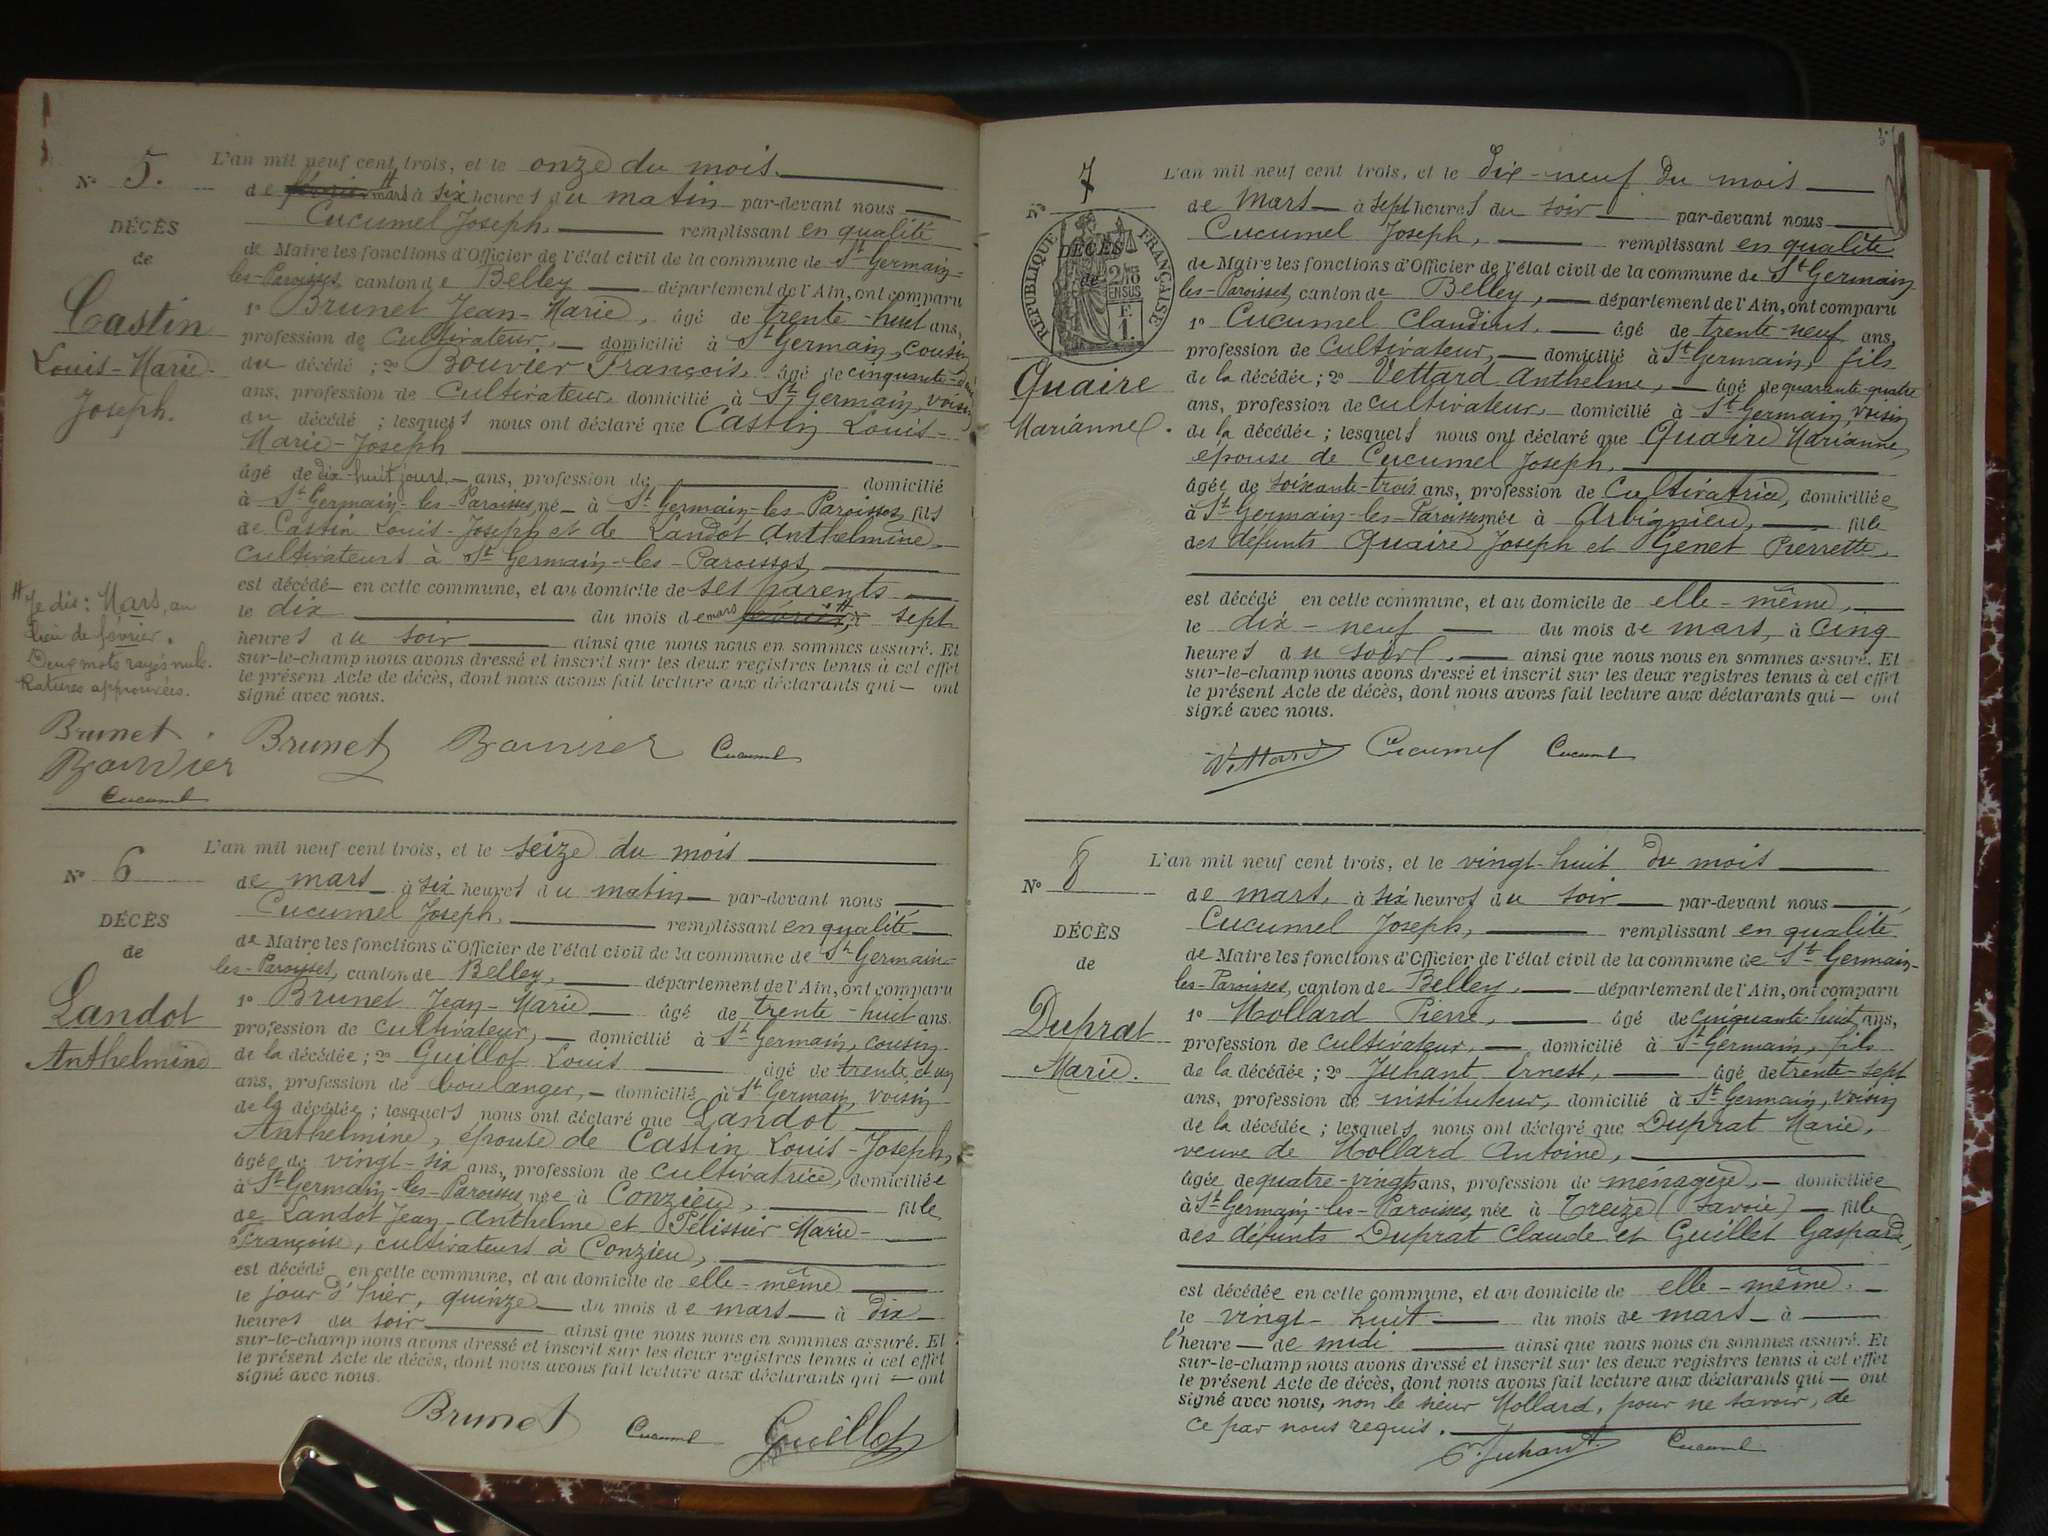 N° 5.
DÉCÈS
de
Castin
Louis-Marie
Joseph.
L'an mil neuf cent trois, et le onze du mois
de février mars à six heures du matin par-devant nous
Cucumel Joseph, remplissant en qualité
de Maire les fonctions d'Officier de l'état civil de la commune de St Germain-
les-Paroisses, canton de Belley département de l'Ain, ont comparu
1° Brunet Jean-Marie, âgé de trente-huit ans,
profession de Cultivateur, domicilié à St Germain, cousin
du décédé ; 2° Bouvier François, âgé de cinquante-
ans, profession de Cultivateur, domicilié à St Germain, voisin
du décédé ; lesquels nous ont déclaré que Castin Louis-
Marie-Joseph
âgé de dix-huit jours ans, profession de domicilié
à St Germain-les-Paroisses, né à St Germain-les-Paroisses, fils
de Castin Louis-Joseph et de Landot Anthelmine
cultivateurs à St Germain-les-Paroisses,
est décédé en cette commune, et au domicile de ses parents
le dix du mois de mars février, à sept
heures du soir ainsi que nous nous en sommes assuré. Et
sur-le-champ nous avons dressé et inscrit sur les deux registres tenus à cet effet
le présent Acte de décès, dont nous avons fait lecture aux déclarants qui ont
signé avec nous.
Je dis : Mars, au
lieu de février.
Deux mots rayés nuls.
Ratures approuvées.
Brunet
Bouvier
Cucumel
Brunet Bouvier Cucumel
N° 6
DÉCÈS
de
Landot
Anthelmine
L'an mil neuf cent trois, et le seize du mois
de mars à six heures du matin par-devant nous
Cucumel Joseph, remplissant en qualité
de Maire les fonctions d'Officier de l'état civil de la commune de St Germain-
les-Paroisses, canton de Belley, département de l'Ain, ont comparu
1° Brunet Jean-Marie âgé de trente-huit ans
profession de cultivateur, domicilié à St Germain, cousin
de la décédée ; 2° Guillot Louis âgé de trente et un
ans, profession de boulanger, domicilié à St Germain, voisin
de la décédée ; lesquels nous ont déclaré que Landot
Anthelmine, épouse de Castin Louis-Joseph,
âgée de vingt-six ans, profession de cultivatrice, domiciliée
à St Germain-les-Paroisses, née à Conzieu, fille
de Landot Jean-Anthelme et Pélissier Marie-
Françoise, cultivateurs à Conzieu,
est décédé en cette commune, et au domicile de elle-même
le jour d'hier, quinze du mois de mars à dix
heures du soir ainsi que nous nous en sommes assuré. Et
sur-le-champ nous avons dressé et inscrit sur les deux registres tenus à cet effet
le présent Acte de décès, dont nous avons fait lecture aux déclarants qui ont
signé avec nous.
Brunet Cucumel Guillot
N° 7
RÉPUBLIQUE FRANÇAISE
2/10 EN SUS
F. 1.
DÉCÈS
de
Quaire
Marianne.
L'an mil neuf cent trois, et le dix-neuf du mois
de Mars à sept heures du soir par-devant nous
Cucumel Joseph, remplissant en qualité
de Maire les fonctions d'Officier de l'état civil de la commune de St Germain
les-Paroisses, canton de Belley, département de l'Ain, ont comparu
1° Cucumel Claudius, âgé de trente-neuf ans,
profession de Cultivateur, domicilié à St Germain, fils
de la décédée ; 2° Vettard Anthelme, âgé de quarante-quatre
ans, profession de cultivateur, domicilié à St Germain, voisin
de la décédée ; lesquels nous ont déclaré que Quaire Marianne
épouse de Cucumel Joseph,
âgée de soixante-trois ans, profession de Cultivatrice, domiciliée
à St Germain-les-Paroisses, née à Arbignieu, fille
des défunts Quaire Joseph et Genet Pierrette,
est décédé en cette commune, et au domicile de elle-même,
le dix-neuf du mois de mars, à cinq
heures du soir, ainsi que nous nous en sommes assuré. Et
sur-le-champ nous avons dressé et inscrit sur les deux registres tenus à cet effet
le présent Acte de décès, dont nous avons fait lecture aux déclarants qui ont
signé avec nous.
Vettard Cucumel Cucumel
N° 8
DÉCÈS
de
Duprat
Marie.
L'an mil neuf cent trois, et le vingt-huit du mois
de mars, à six heures du soir par-devant nous
Cucumel Joseph, remplissant en qualité
de Maire les fonctions d'Officier de l'état civil de la commune de St Germain-
les-Paroisses, canton de Belley, département de l'Ain, ont comparu
1° Mollard Pierre, âgé de cinquante-huit ans,
profession de cultivateur, domicilié à St Germain, fils
de la décédée ; 2° Juhant Ernest, âgé de trente-sept
ans, profession de instituteur, domicilié à St Germain, voisin
de la décédée ; lesquels nous ont déclaré que Duprat Marie,
veuve de Mollard Antoine,
âgée de quatre-vingts ans, profession de ménagère, domiciliée
à St Germain-les-Paroisses, née à Treize (Savoie) fille
des défunts Duprat Claude et Guillet Gasparde,
est décédée en cette commune, et au domicile de elle-même,
le vingt-huit du mois de mars à
l'heure de midi ainsi que nous nous en sommes assuré. Et
sur-le-champ nous avons dressé et inscrit sur les deux registres tenus à cet effet
le présent Acte de décès, dont nous avons fait lecture aux déclarants qui ont
signé avec nous, non le sieur Mollard, pour ne savoir, de
ce par nous requis.
E. Juhant Cucumel